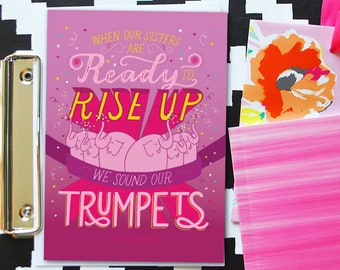 WHEN OUR SISTERS
ARE
Ready TO
RISE UP
WE SOUND OUR
TRUMPETS